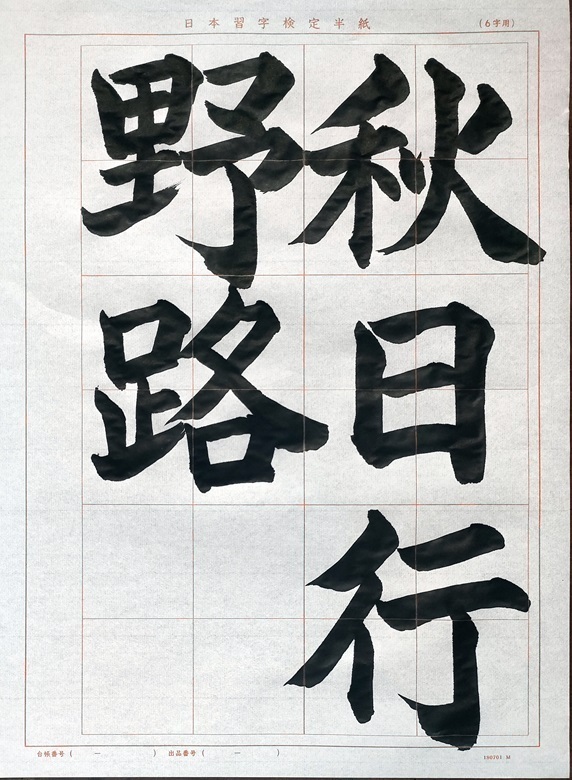 日本習字検定半紙
(6字用)
秋日行
野路
台帳番号( ー )
出品番号( ー )
190701 M